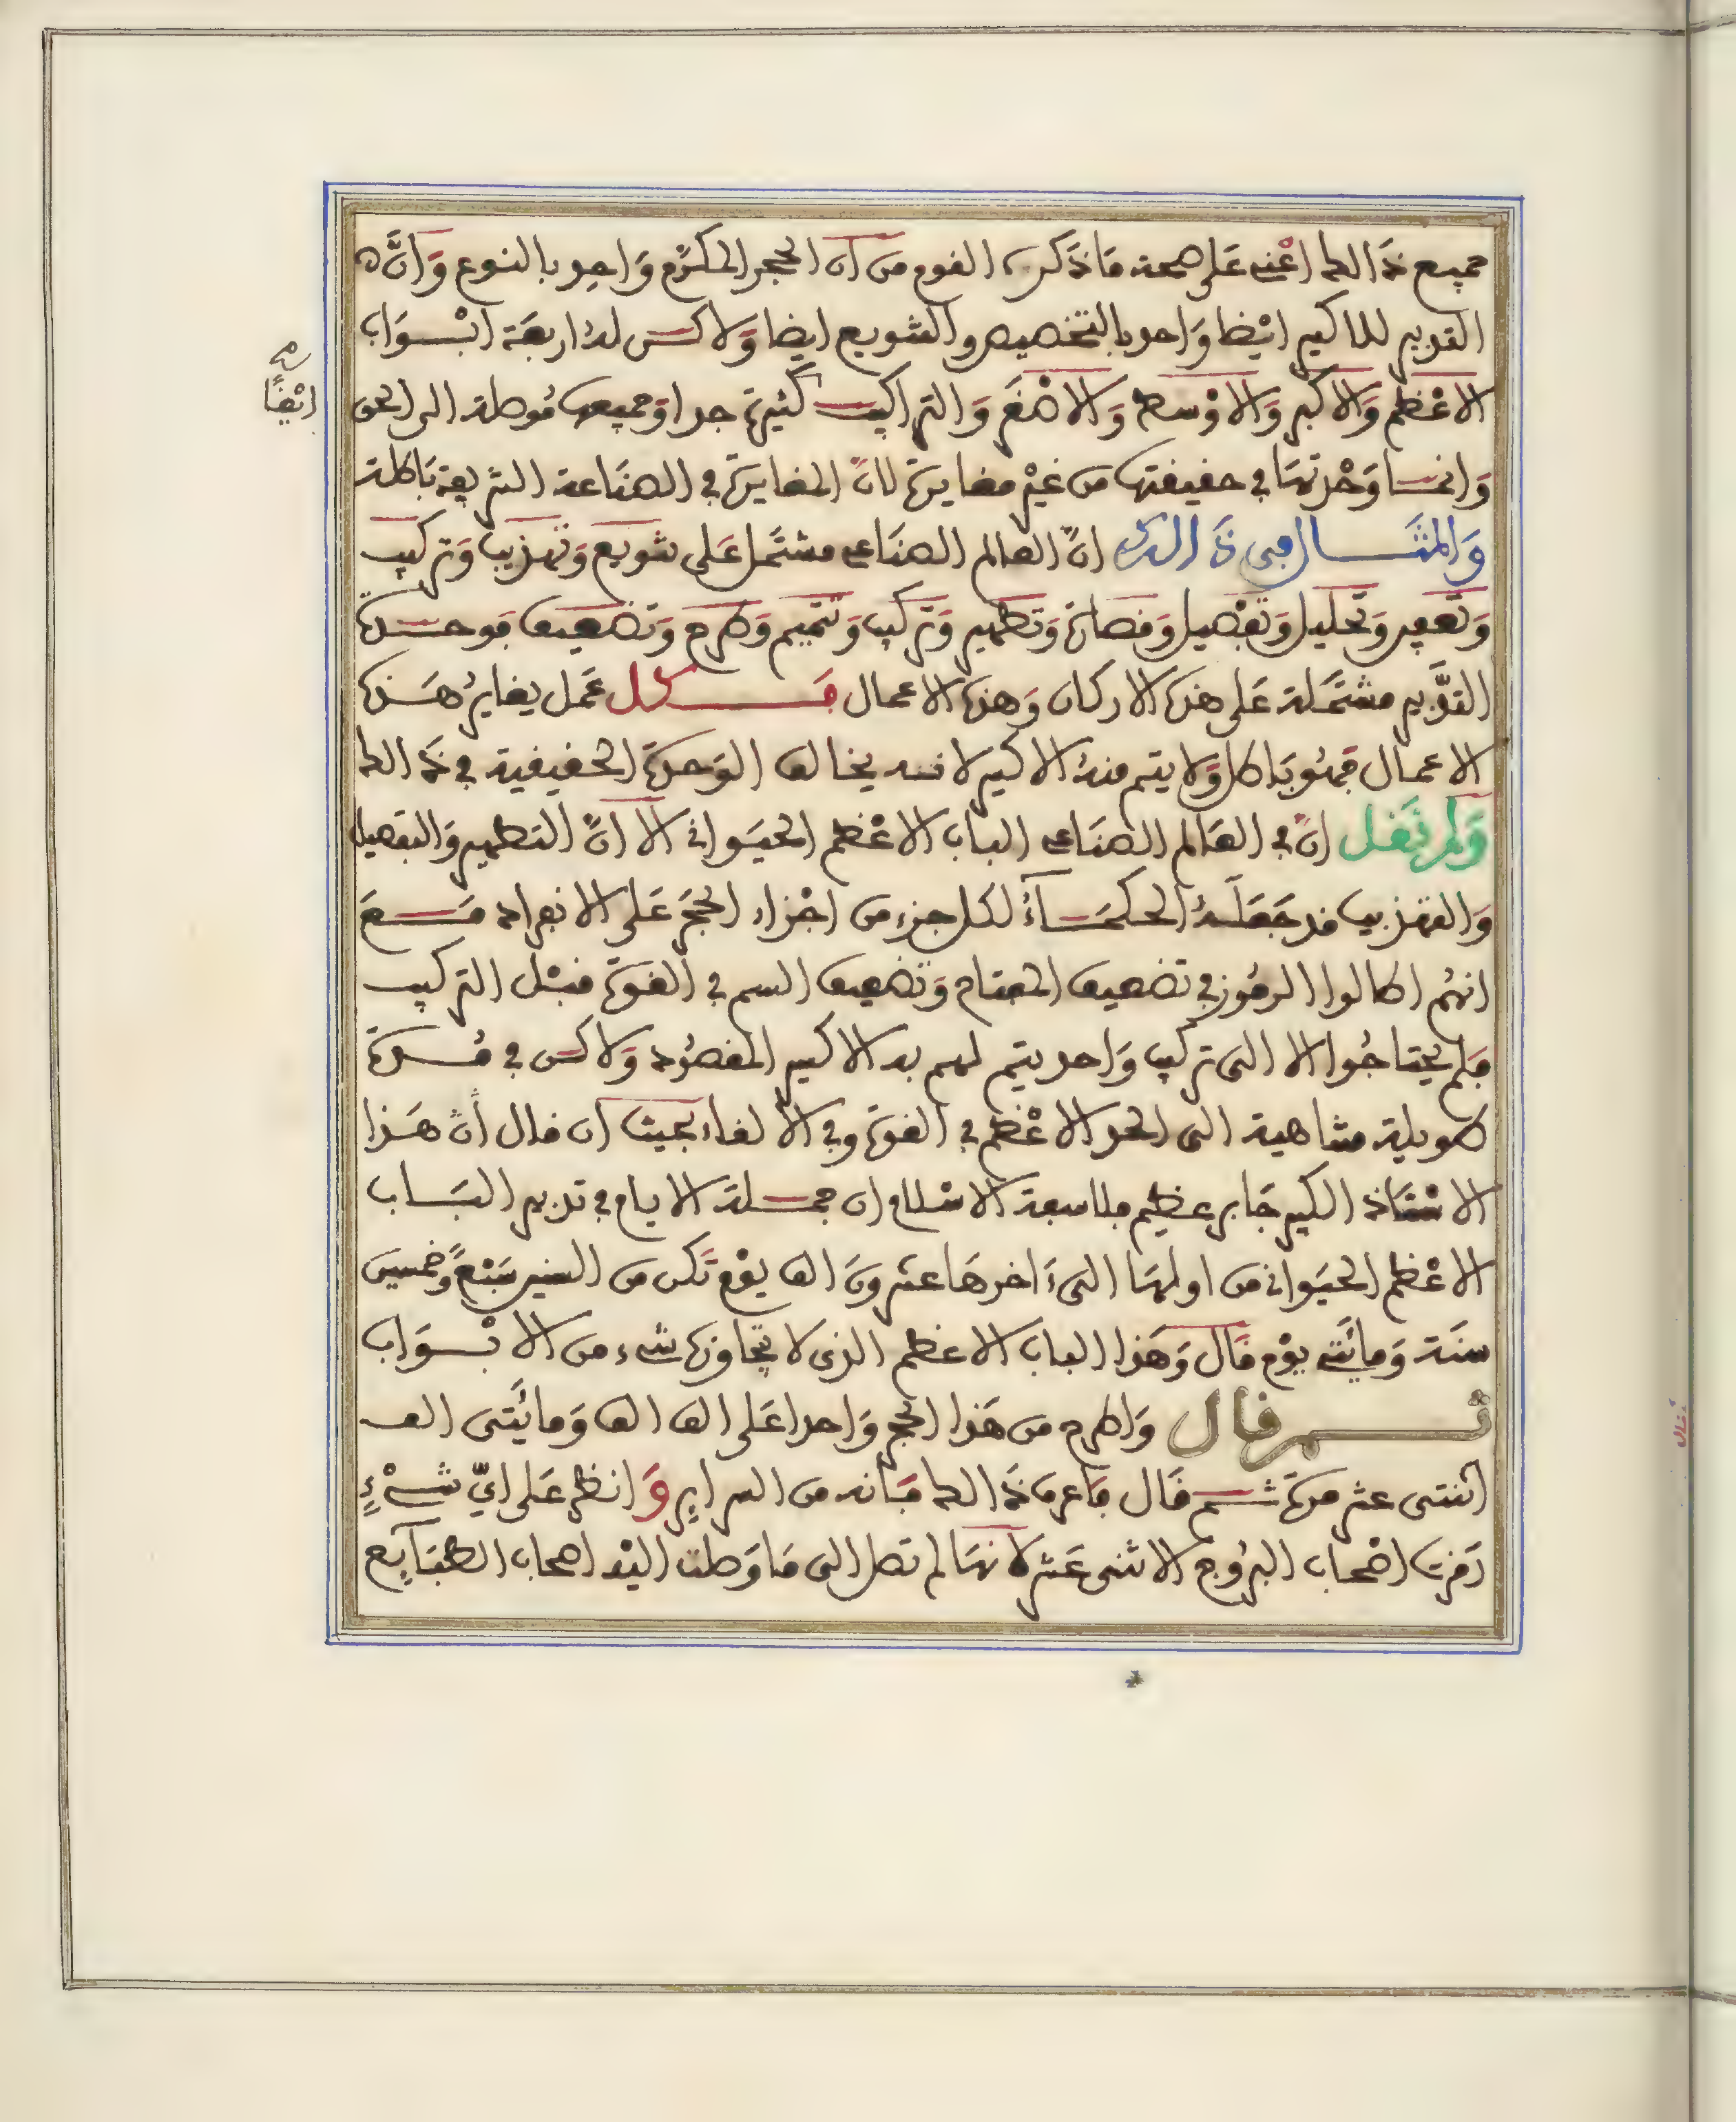 جميع ذالك اعني على صحة ما ذكره القوم من ان الحجر المكرّم واحد بالنوع وانّ
التدبير للاكسير ايضا واحد بالتخصيص والتنويع ايضا ولاكن له اربعة ابواب
ايضًا
الاعظم والاكبر والاوسط والاصغر والتراكيب كثيرة جدا وجميعها موصلة الى الحق
وانما وحدتها في حقيقتها من غير مغايرة لانّ المغايرة في الصناعة الشريفة باطلة
والمثال في ذالك انّ العالم الصناعي مشتمل على تنويع وتهذيب وتركيب
وتعفير وتحليل وتفصيل ومصاة وتطهير وتركيب وتتميم وطرح وتضعيف فوحدة
التدبير مشتملة على هذه الاركان وهذه الاعمال فكل عمل يغاير هذه
الاعمال فهو باطل ولا يتم منه الاكسير لانه يخالف الوحدة الحقيقية في ذالك
ولم نقل انّ في العالم الصناعي الباب الاعظم الحيواني الا انّ التطهير والتفصيل
والتهذيب قد جعله الحكماء لكل جزء من اجزاء الحجر على الانفراد مع
انهم اطالوا الرموز في تضعيف المفتاح وتضعيف السم في القوة قبل التركيب
فلم يحتاجوا الا الى تركيب واحد يتم لهم به الاكسير المقصود ولاكن في مدة
طويلة متناهية الى الحد الاعظم في القوة وفي الالقاء بحيث ان قال ان هذا
الاستاذ الكبير جابر عظيم فلاسفة الاسلام ان جملة الايام في تدبير الباب
الاعظم الحيواني من اولها الى ءاخرها عشرون الف يوم تكن من السنين سبع وخمسين
سنة ومائتي يوم قال وهذا الباب الاعظم الذي لا يتجاوزه شيء من الابواب
ثم قال واطرح من هذا الحجر واحدا على الف الف ومائتى الف
اثنتى عشر مرة ثم قال فاعرف ذالك فانه من السراير وانظر على ايّ شيءٍ
رمزت اصحاب البروج الاثنى عشر لانها لم تصل الى ما وصلت اليه اصحاب الطبايع